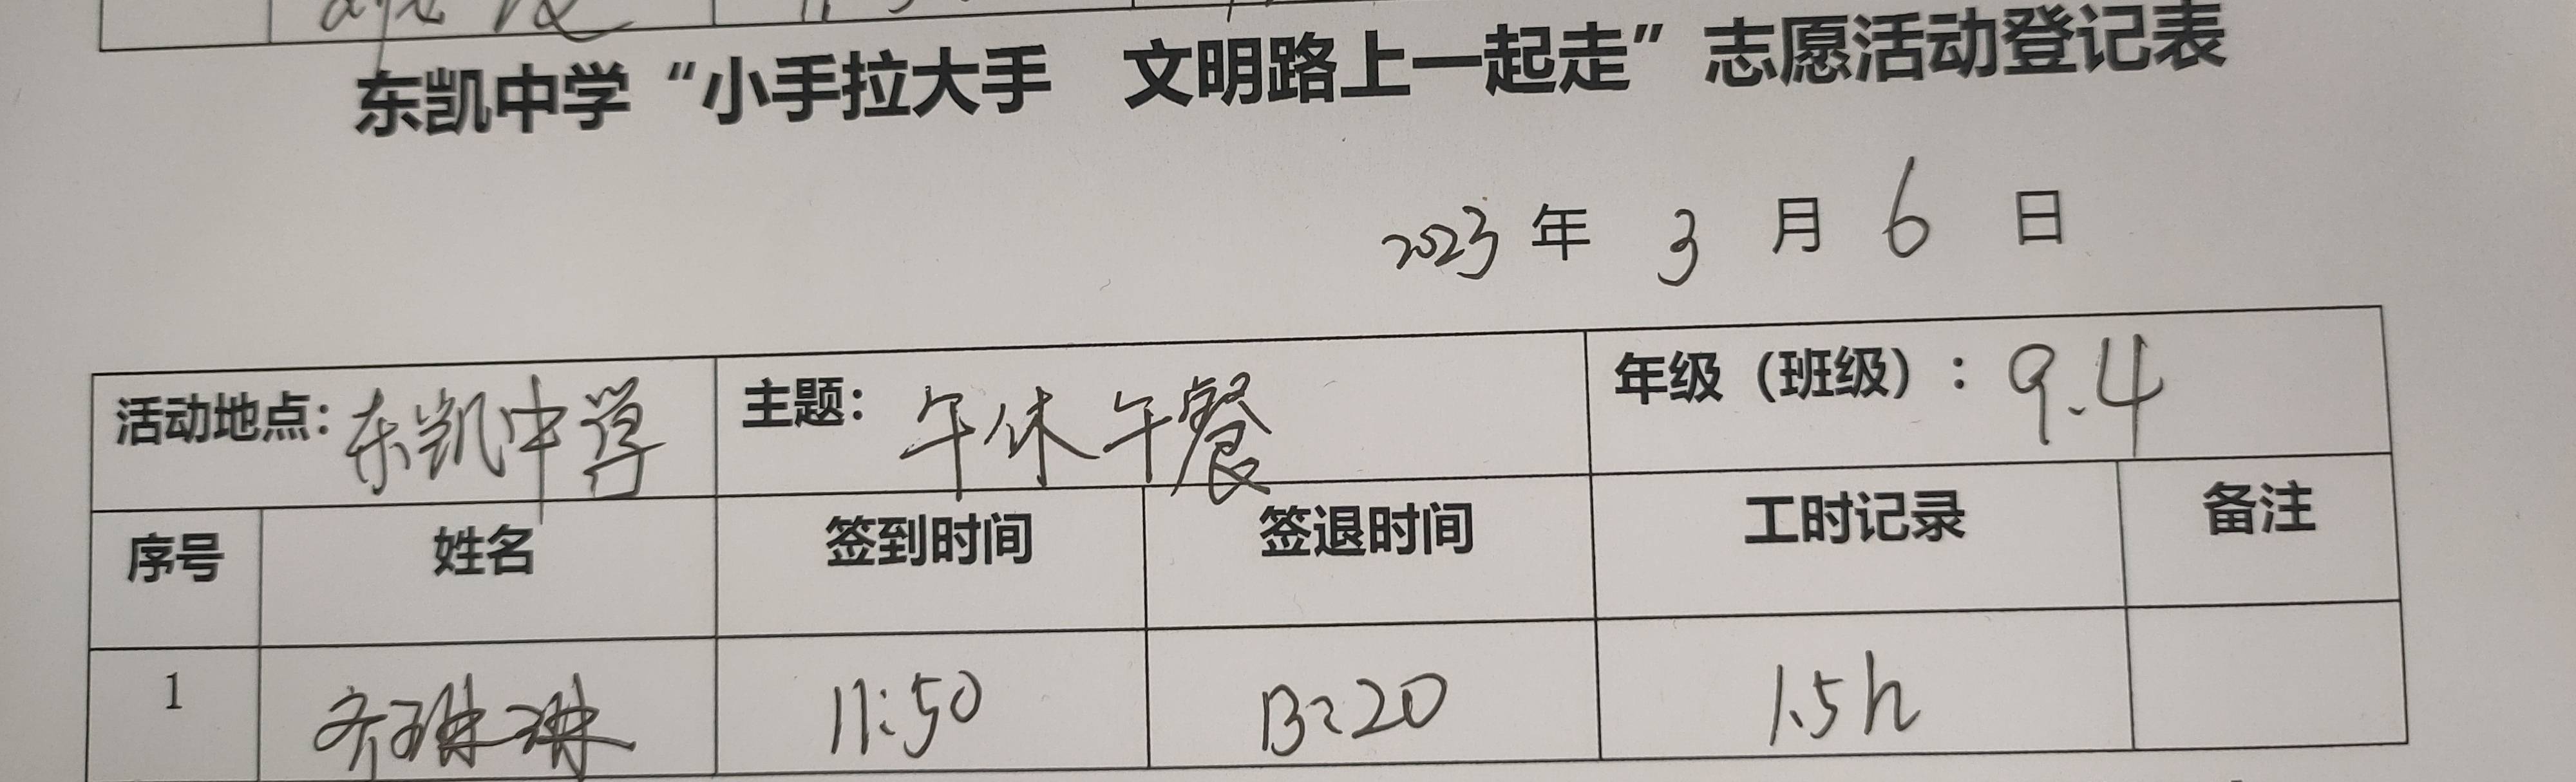 东凯中学“小手拉大手 文明路上一起走”志愿活动登记表
2023 年 3 月 6 日
活动地点：东凯中学 主题：午休午餐 年级（班级）：9.4
序号 姓名 签到时间 签退时间 工时记录 备注
1 齐琳琳 11:50 13:20 1.5h